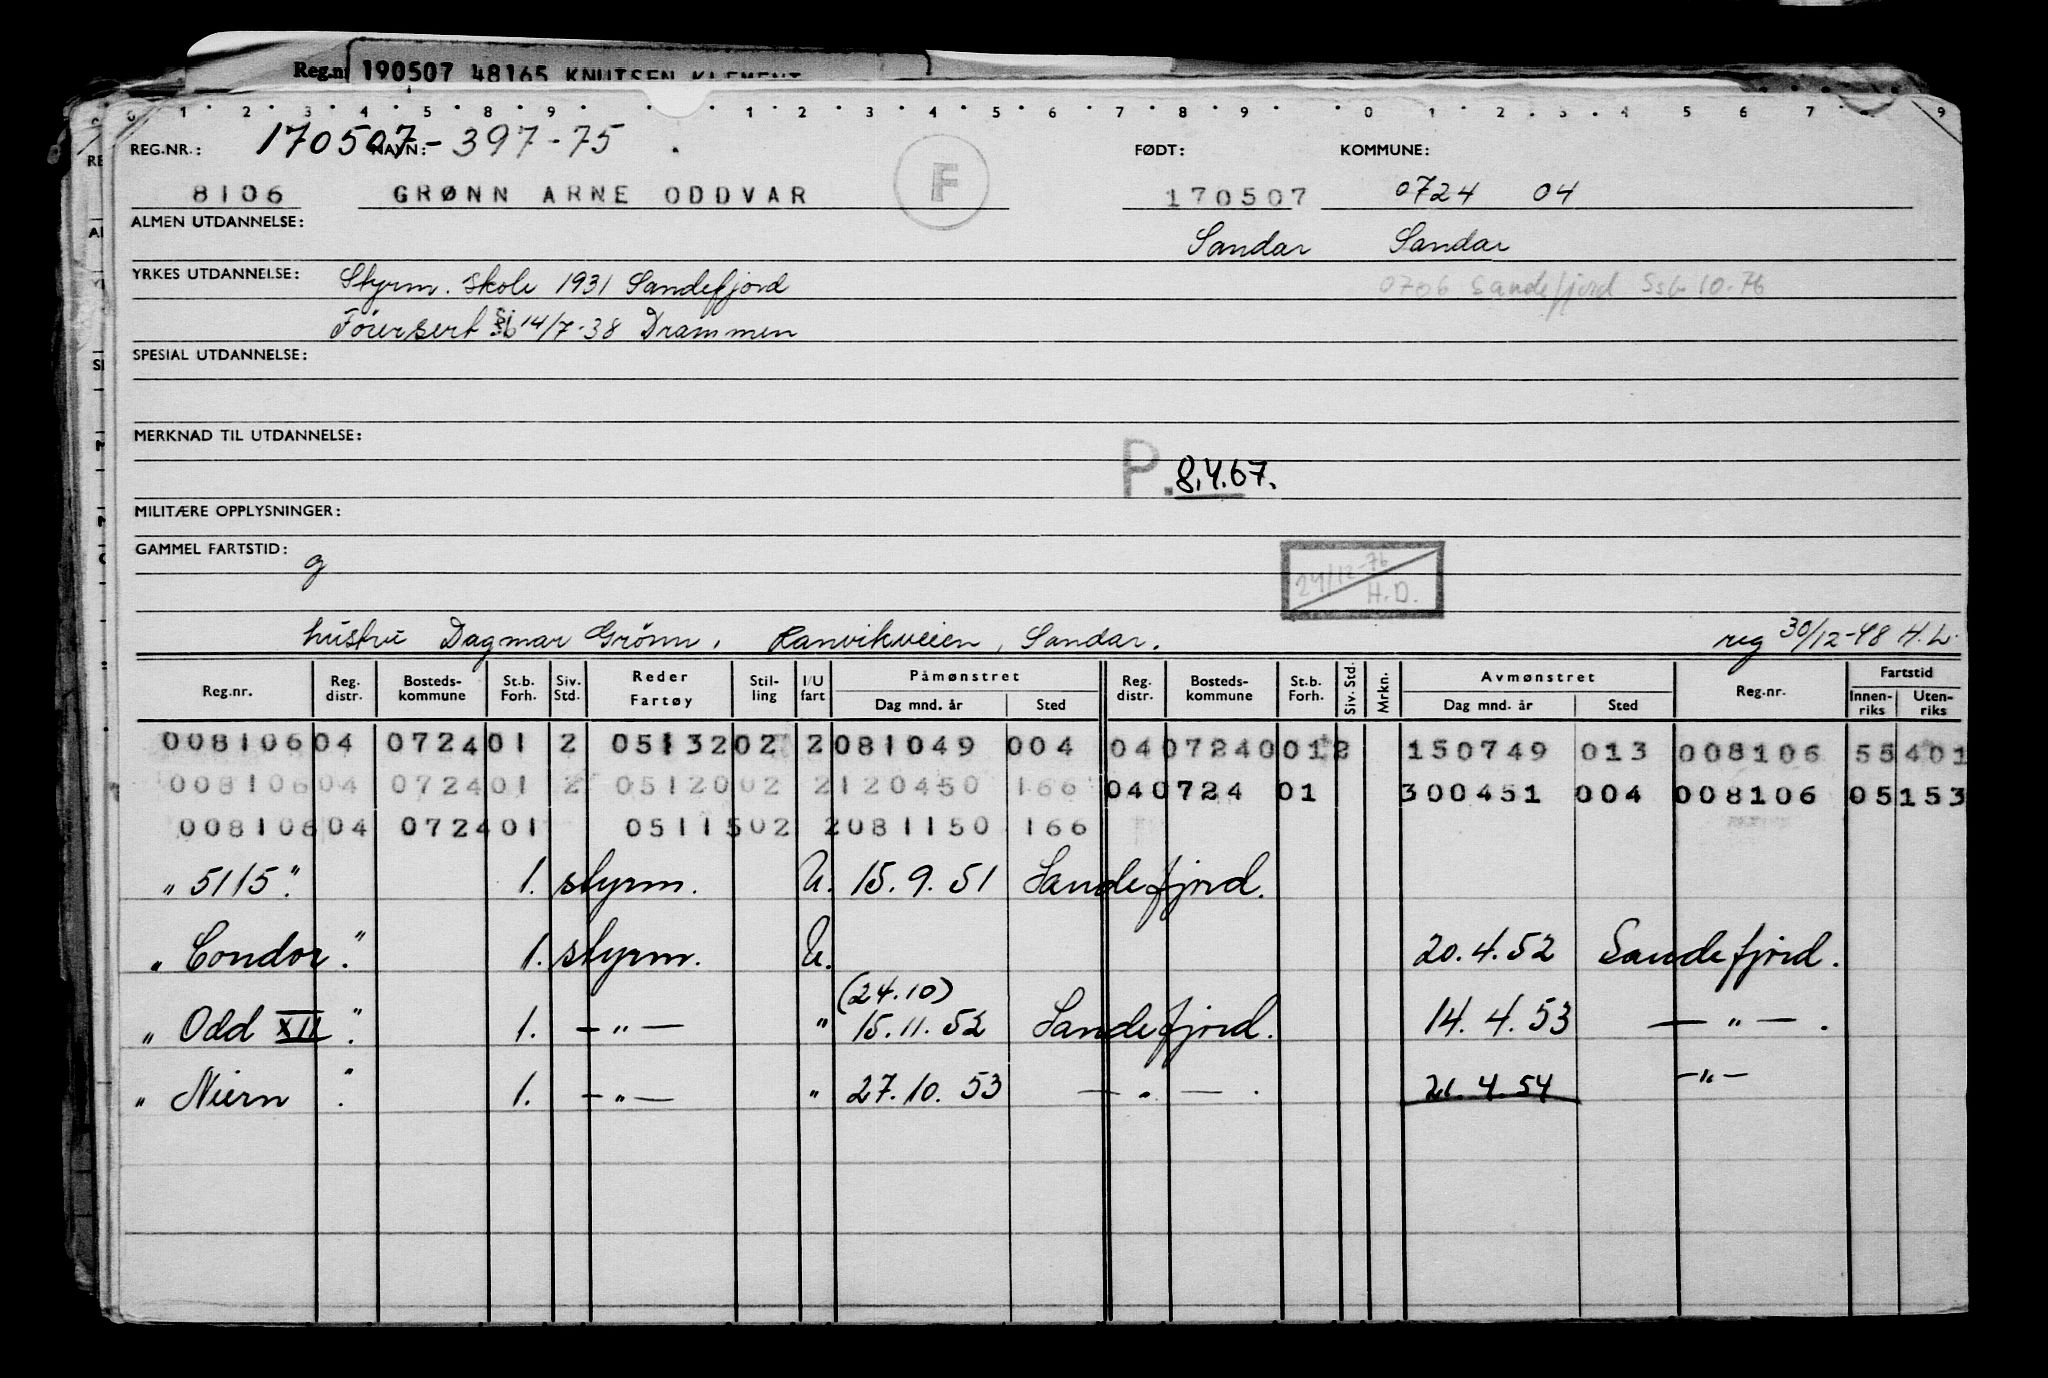 Reg.nr 190507 48165 KNUTSEN KLEMENT
0 1 2 3 4 5 6 7 8 9 1 2 3 4 5 6 7 8 9 0 1 2 3 4 5 6 7 9
REG.NR.: 170507-397-75 NAVN: FØDT: KOMMUNE:
8106 GRØNN ARNE ODDVAR F 170507 0724 04
ALMEN UTDANNELSE: Sandar Sandar
YRKES UTDANNELSE: Styrm. skole 1931 Sandefjord 0706 Sandefjord Ssb 10-76
14/7-38 Drammen
SPESIAL UTDANNELSE:
MERKNAD TIL UTDANNELSE:
P. 8.4.67.
MILITÆRE OPPLYSNINGER:
GAMMEL FARTSTID: g
24/12-76 H.D.
hustru Dagmar Grönn, Ranvikveien, Sandar. reg 30/12-48 H.L.
Reg.nr. Reg. distr. Bosteds-kommune St.b. Forh. Siv. Std. Reder Fartøy Stil-ling I/U fart Påmønstret Dag mnd. år Sted Reg. distr. Bosteds-kommune St.b. Forh. Siv. Std. Mrkn. Avmønstret Dag mnd. år Sted Reg.nr. Fartstid Innen-riks Uten-riks
008106 04 0724 01 2 05132 02 2 081049 004 04 0724 0 01 2 150749 013 008106 55 401
008106 04 0724 01 2 05120 02 2 120450 166 04 0724 01 300451 004 008106 05 153
008106 04 0724 01 05115 02 2 081150 166
„5115". 1. styrm. U. 15.9.51 Sandefjord.
„Condor". 1. styrm. U. 20.4.52 Sandefjord.
(24.10)
„Odd XII". 1. -„- " 15.11.52 Sandefjord. 14.4.53 -"-.
„Niern". 1. -„- " 27.10.53 -„-. 21.4.54 -"-